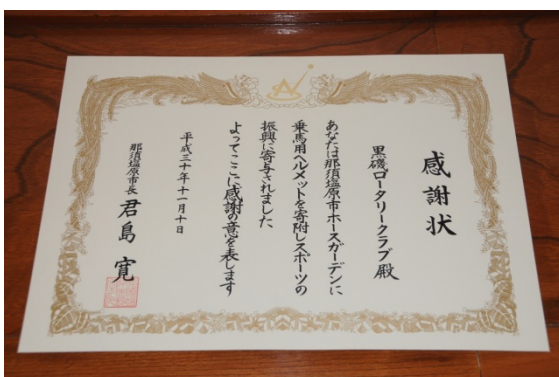 感謝状
黒磯ロータリークラブ殿
あなたは那須塩原市ホースガーデンに
乗馬用ヘルメットを寄附しスポーツの
振興に寄与されました
よってここに感謝の意を表します
平成三十年十一月十日
那須塩原市長 君島寛